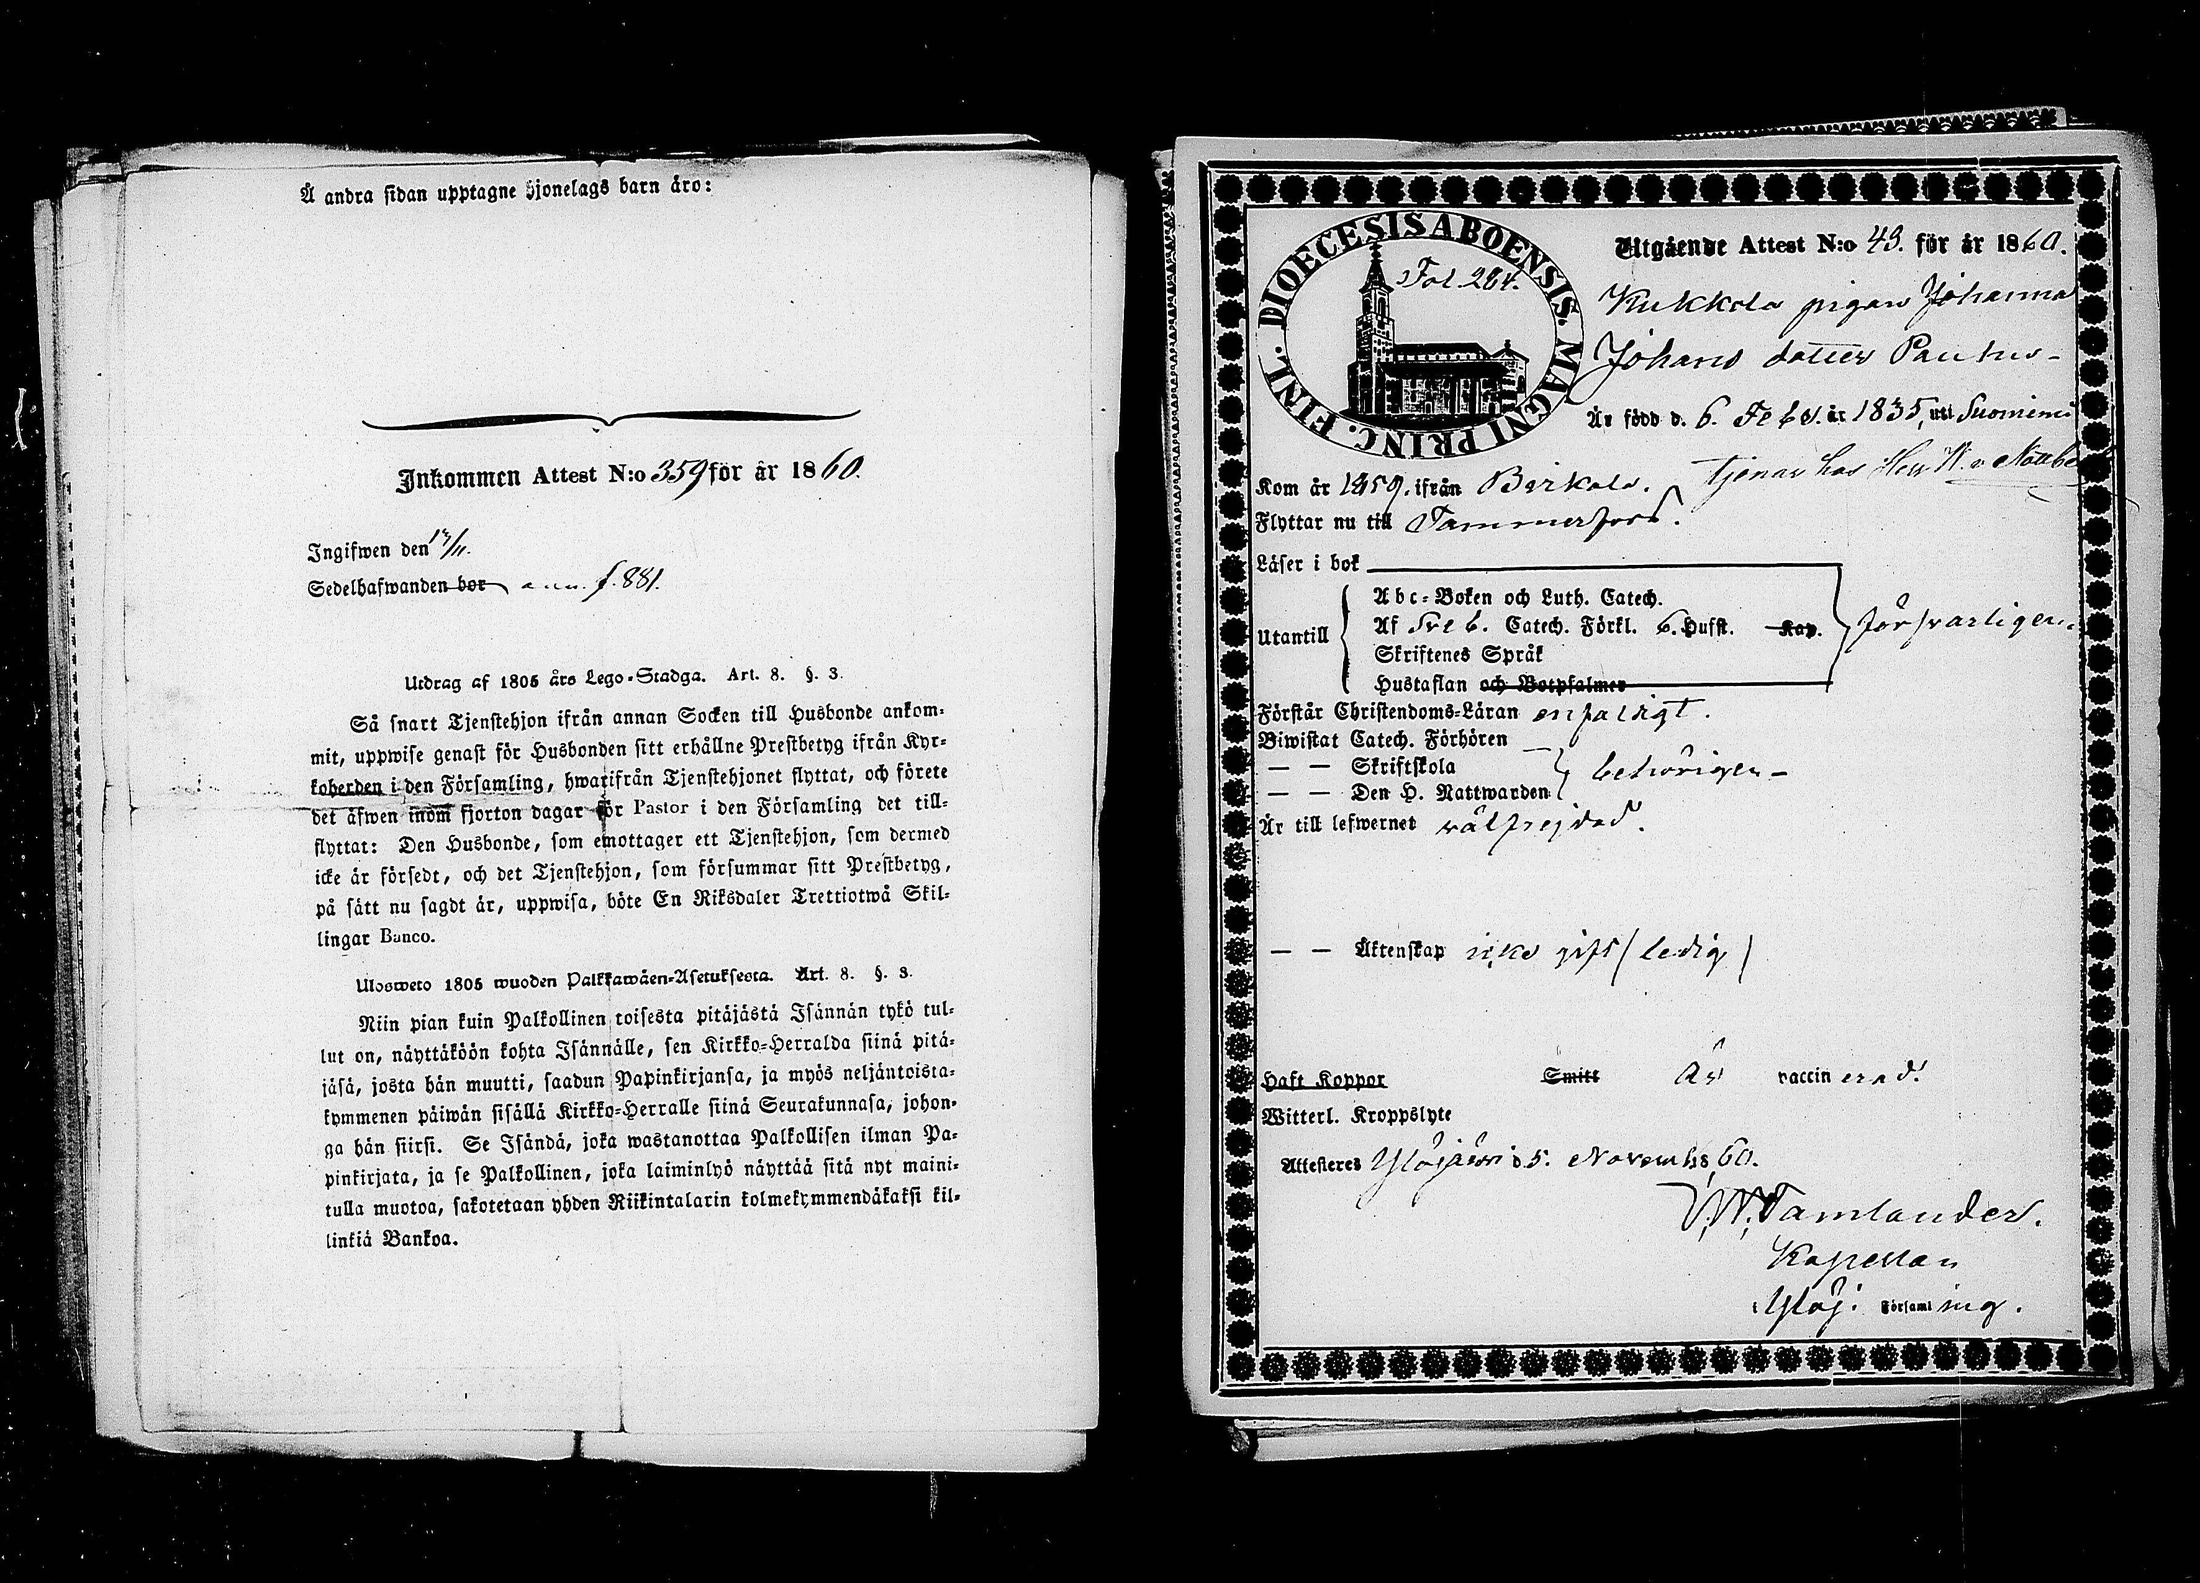 Å andra sidan upptagne hjonelags barn äro:
Inkommen Attest N:o 359 för år 1860.
Ingifwen den 17/11.
Sedelhafwanden bor ann. f. 881.
Utdrag af 1805 års Lego-Stadga. Art. 8. §. 3.
Så snart Tjenstehjon ifrån annan Socken till Husbonde ankom-
mit, uppwise genast för Husbonden sitt erhållne Prestbetyg ifrån Kyr-
koherden i den Församling, hwarifrån Tjenstehjonet flyttat, och förete
det äfwen inom fjorton dagar för Pastor i den Församling det till-
flyttat: Den Husbonde, som emottager ett Tjenstehjon, som dermed
icke är försedt, och det Tjenstehjon, som försummar sitt Prestbetyg,
på sätt nu sagdt är, uppwisa, böte En Riksdaler Trettiotwå Skil-
lingar Banco.
Ulosweto 1805 wuoden Palkkawäen-Asetuksesta. Art. 8. §. 3.
Niin pian kuin Palkollinen toisesta pitäjästä Isännän tykö tul-
lut on, näyttäköön kohta Isännälle, sen Kirkko-Herralda siinä pitä-
jäsä, josta hän muutti, saadun Papinkirjansa, ja myös neljäntoista-
kymmenen päiwän sisällä Kirkko-Herralle siinä Seurakunnasa, johon-
ga hän siirsi. Se Isändä, joka wastanottaa Palkollisen ilman Pa-
pinkirjata, ja se Palkollinen, joka laiminlyö näyttää sitä nyt maini-
tulla muotoa, sakotetaan yhden Riikintalarin kolmekymmendäkaksi kil-
linkiä Bankoa.
DIOECESIS ABOENSIS. MAGNI PRINC. FINL.
Fol. 284.
Utgående Attest N:o 43. för år 1860.
Kukkola pigan Johanna
Johans dotter Pantus-
Är född d. 6. Febr. år 1835, uti Suoniemi
Kom år 1859. ifrån Birkala. tjenar hos Herr W. v. Nottbe
Flyttar nu till Tammerfors.
Läser i bok
Utantill
Abc-Boken och Luth. Catech.
Af Sveb. Catech. Förkl. 6. Hufst. Kap. försvarligen.
Skriftenes Språk
Hustaflan och Botpsalmer
Förstår Christendoms-Läran enfaldigt.
Biwistat Catech. Förhören
— — Skriftskola behörigen-
— — Den H. Nattwarden
Är till lefwernet välfrejdad.
— — Äktenskap icke gift (ledig)
Haft Koppor Smitt Är vaccinerad.
Witterl. Kroppslyte
Attesteres Ylöjärvi d. 5. Novemb. 60.
W. Tamlander.
Kapellan
i Ylöj. Församling.